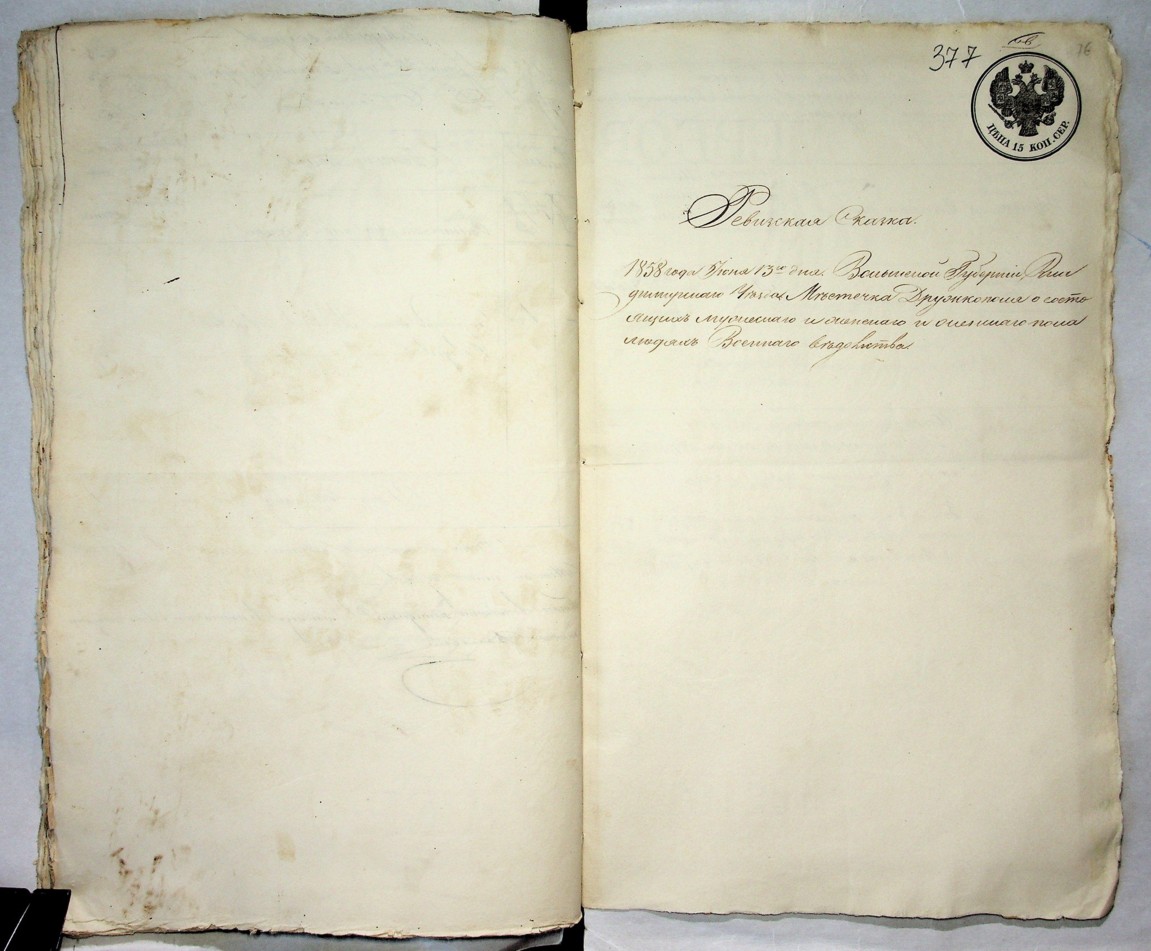 377
ЦѢНА 15 КОП. СЕР.
Ревизская Сказка.
1858 года Июня 13го дня Волынской Губерніи, Вла
димірскаго Уѣзда Мѣстечка Дружкополя о состо
ящихъ мужескаго и женскаго и женскаго пола
людяхъ Военнаго вѣдомства